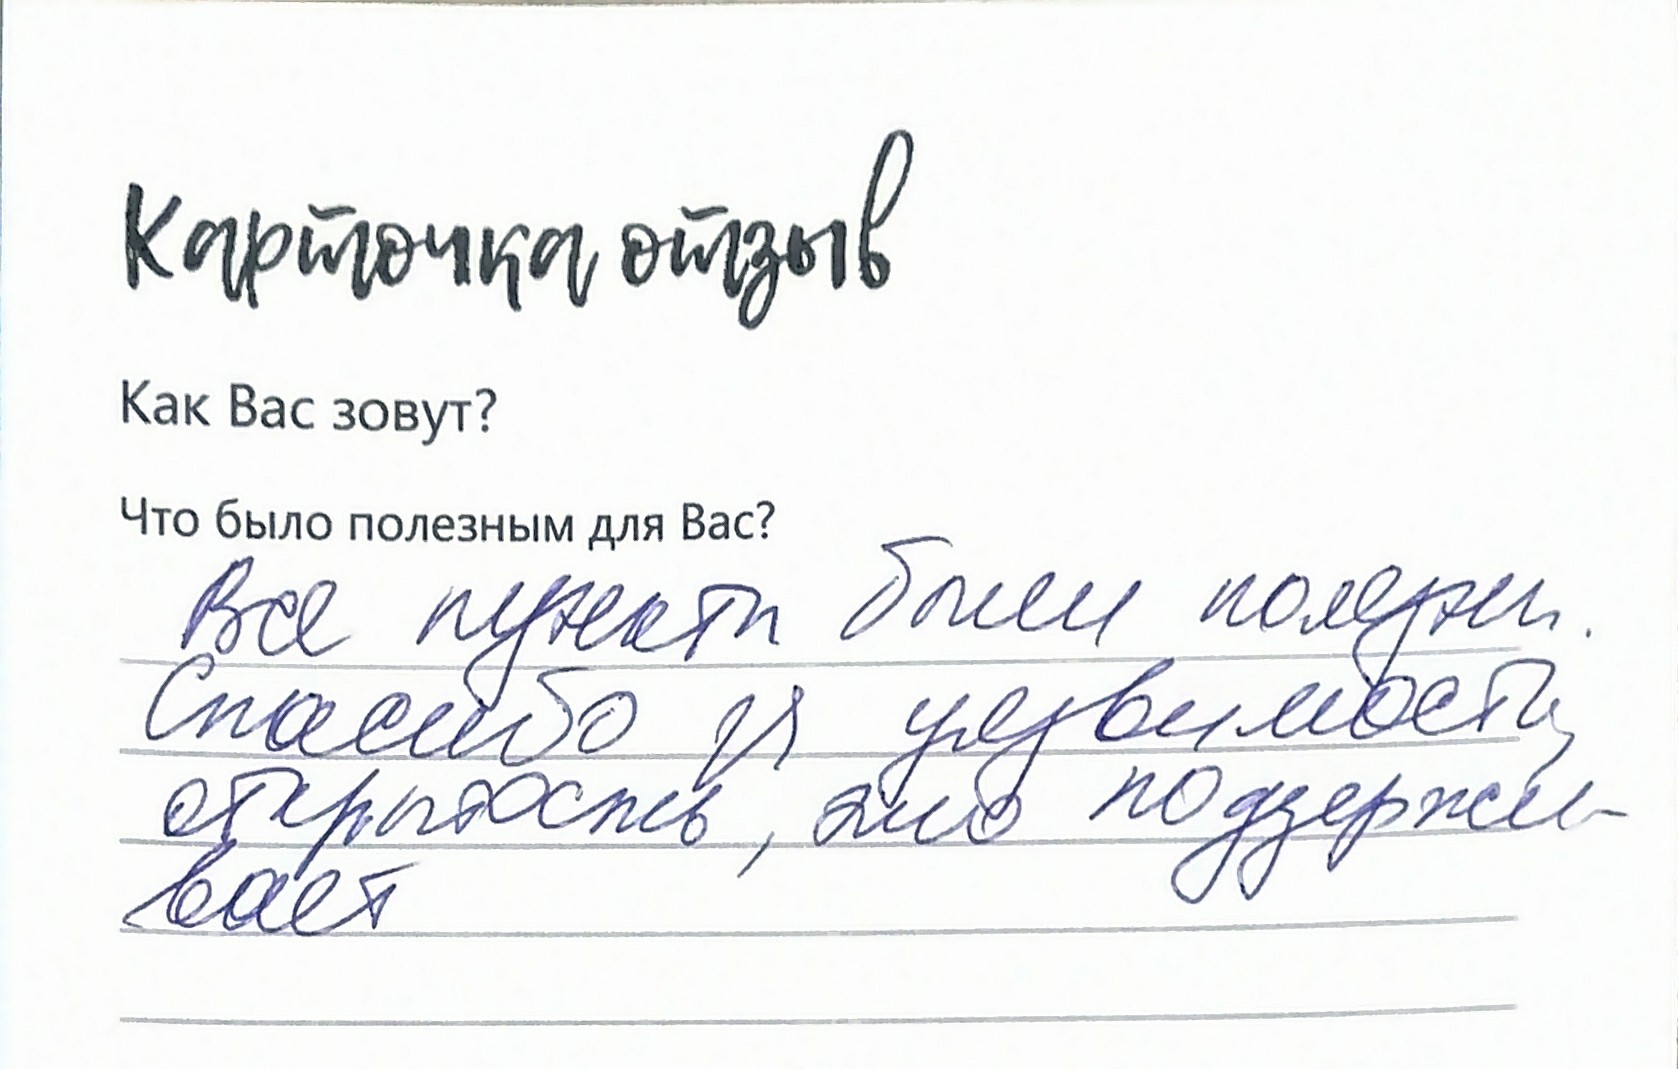 Карточка отзыв
Как Вас зовут?
Что было полезным для Вас?
Все пункты были полезны.
Спасибо за уязвимость,
открытость, это поддержи-
вает